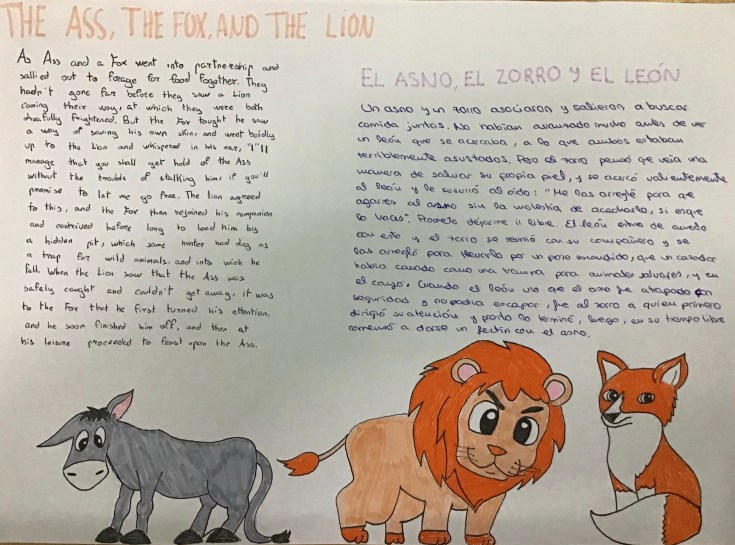 THE ASS, THE FOX, AND THE LION
As Ass and a Fox went into partnership and
sallied out to forage for food together. They
hadn't gone far before they saw a Lion
coming their way, at which they were both
dreafully frightened. But the Fox tought he saw
a way of saving his own skin, and went boldly
up to the Lion and whispered in his ear, "I'll
manage that you shall get hold of the Ass
without the trouble of stalking him, if you'll
promise to let me go free. The lion agreed
to this, and the Fox then rejoined his companion
and contrived before long to lead him by
a hidden pit, which some hunter had dug as
a trap for wild animals, and into wich he
fell. When the Lion saw that the Ass was
safely caught and couldn't get away, it was
to the Fox that he first turned his attention,
and he soon finished him off, and then at
his leisure proceeded to feast upon the Ass.
EL ASNO, EL ZORRO Y EL LEÓN
Un asno y un zorro asociaron y salieron a buscar
comida juntos. No habían avanzado mucho antes de ver
un león que se acercaba, a lo que ambos estaban
terriblemente asustados. Pero el zorro pensó que veía una
manera de salvar su propia piel, y se acercó valientemente
al león y le susurró al oído: "Me las arreglé para que
agarres al asno sin la molestia de acecharlo, si esque
lo haces". Promete dejarme ir libre. El león estuvo de acuerdo
con esto y el zorro se reunió con su compañero y se
las arregló para llevarlo por un pozo escondido, que un cazador
había cavado como una trampa para animales salvajes, y en
el cayó. Cuando el león vio que el asno fue atrapado con
seguridad y no podía escapar, fue al zorro a quien primero
dirigió su atención y pronto lo terminó, luego, en su tiempo libre
comenzó a darse un festín con el asno.